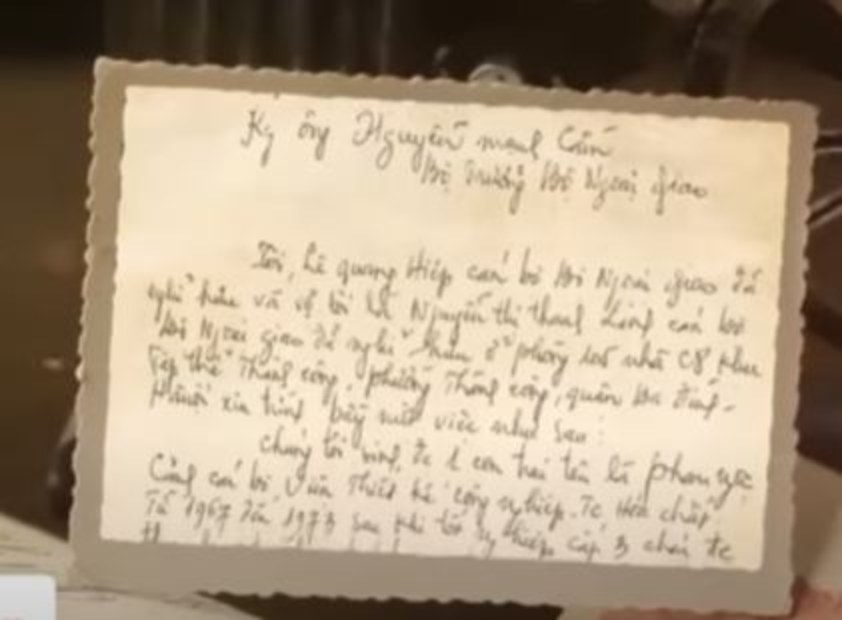 Kg ông Nguyễn mạnh Cầm
Bộ trưởng Bộ Ngoại giao
Tôi, Lê quang Hiệp cán bộ Bộ Ngoại giao đã
nghỉ hưu và vợ tôi là Nguyễn thị thanh cán bộ
Bộ Ngoại giao đã nghỉ hưu ở phòng nhà C8 khu
tập thể Thành công, phường Thành công, quận Ba đình -
Hànội xin trình bày một việc như sau:
Chúng tôi sinh đc 1 con trai tên là
cán bộ Viện Thiết kế công nghiệp - Tc Hóa chất.
Từ 1967 đến 1973 sau khi tốt nghiệp cấp 3 cháu đc